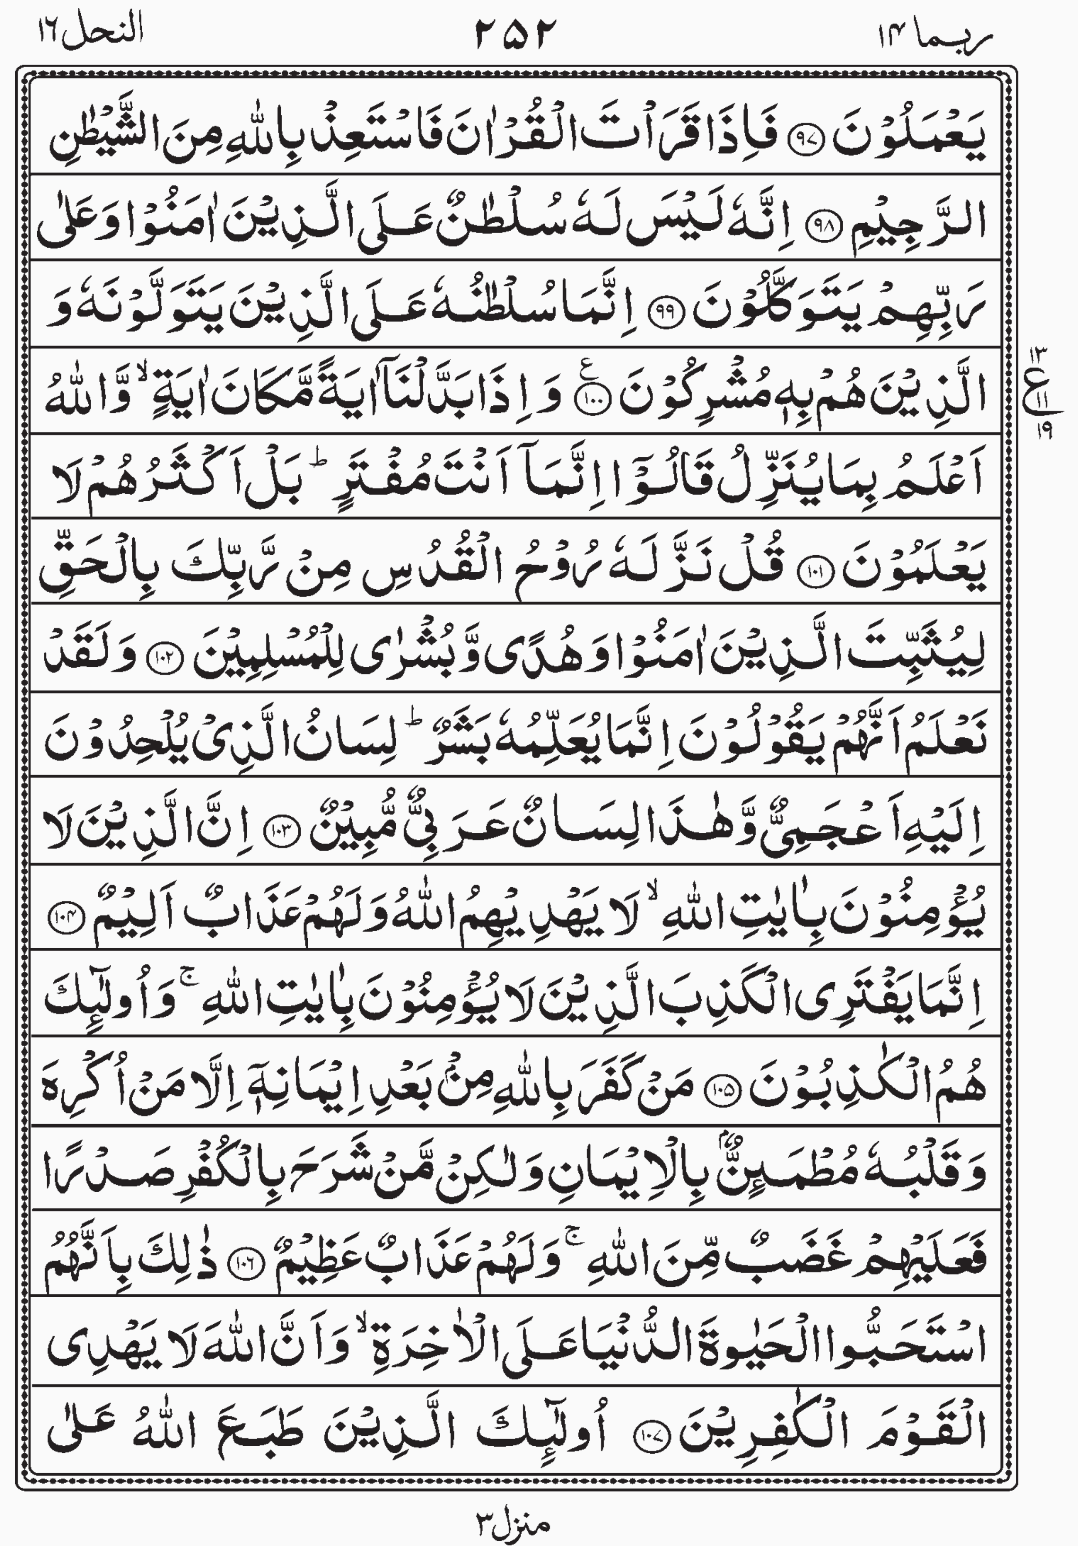 ربما ١۴
٢۵٢
النحل ١٦
يَعْمَلُوْنَ ﴿٩٧﴾ فَاِذَا قَرَاْتَ الْقُرْاٰنَ فَاسْتَعِذْ بِاللّٰهِ مِنَ الشَّيْطٰنِ
الرَّجِيْمِ ﴿٩٨﴾ اِنَّهٗ لَيْسَ لَهٗ سُلْطٰنٌ عَلَى الَّذِيْنَ اٰمَنُوْا وَعَلٰى
رَبِّهِمْ يَتَوَكَّلُوْنَ ﴿٩٩﴾ اِنَّمَا سُلْطٰنُهٗ عَلَى الَّذِيْنَ يَتَوَلَّوْنَهٗ وَ
الَّذِيْنَ هُمْ بِهٖ مُشْرِكُوْنَ ﴿١٠٠﴾ ع وَاِذَا بَدَّلْنَاۤ اٰيَةً مَّكَانَ اٰيَةٍ ۙ وَّاللّٰهُ
١٣
ع
١١
١٩
اَعْلَمُ بِمَا يُنَزِّلُ قَالُوْۤا اِنَّمَاۤ اَنْتَ مُفْتَرٍ ؕ بَلْ اَكْثَرُهُمْ لَا
يَعْلَمُوْنَ ﴿١٠١﴾ قُلْ نَزَّلَهٗ رُوْحُ الْقُدُسِ مِنْ رَّبِّكَ بِالْحَقِّ
لِيُثَبِّتَ الَّذِيْنَ اٰمَنُوْا وَهُدًى وَّبُشْرٰى لِلْمُسْلِمِيْنَ ﴿١٠٢﴾ وَلَقَدْ
نَعْلَمُ اَنَّهُمْ يَقُوْلُوْنَ اِنَّمَا يُعَلِّمُهٗ بَشَرٌ ؕ لِسَانُ الَّذِيْ يُلْحِدُوْنَ
اِلَيْهِ اَعْجَمِيٌّ وَّهٰذَا لِسَانٌ عَرَبِيٌّ مُّبِيْنٌ ﴿١٠٣﴾ اِنَّ الَّذِيْنَ لَا
يُؤْمِنُوْنَ بِاٰيٰتِ اللّٰهِ ۙ لَا يَهْدِيْهِمُ اللّٰهُ وَلَهُمْ عَذَابٌ اَلِيْمٌ ﴿١٠۴﴾
اِنَّمَا يَفْتَرِى الْكَذِبَ الَّذِيْنَ لَا يُؤْمِنُوْنَ بِاٰيٰتِ اللّٰهِ ۚ وَاُولٰٓئِكَ
هُمُ الْكٰذِبُوْنَ ﴿١٠۵﴾ مَنْ كَفَرَ بِاللّٰهِ مِنْۢ بَعْدِ اِيْمَانِهٖۤ اِلَّا مَنْ اُكْرِهَ
وَقَلْبُهٗ مُطْمَئِنٌّۢ بِالْاِيْمَانِ وَلٰكِنْ مَّنْ شَرَحَ بِالْكُفْرِ صَدْرًا
فَعَلَيْهِمْ غَضَبٌ مِّنَ اللّٰهِ ۚ وَلَهُمْ عَذَابٌ عَظِيْمٌ ﴿١٠٦﴾ ذٰلِكَ بِاَنَّهُمُ
اسْتَحَبُّوا الْحَيٰوةَ الدُّنْيَا عَلَى الْاٰخِرَةِ ۙ وَاَنَّ اللّٰهَ لَا يَهْدِى
الْقَوْمَ الْكٰفِرِيْنَ ﴿١٠٧﴾ اُولٰٓئِكَ الَّذِيْنَ طَبَعَ اللّٰهُ عَلٰى
منزل ٣